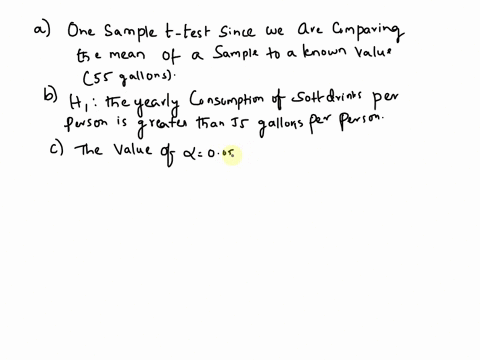 a) One Sample t-test Since we Are Comparing
the mean of a Sample to a known value
(55 gallons).
b) H₁: the yearly Consumption of Soft drinks per
Person is greater than 55 gallons per person.
c) The Value of α = 0.05